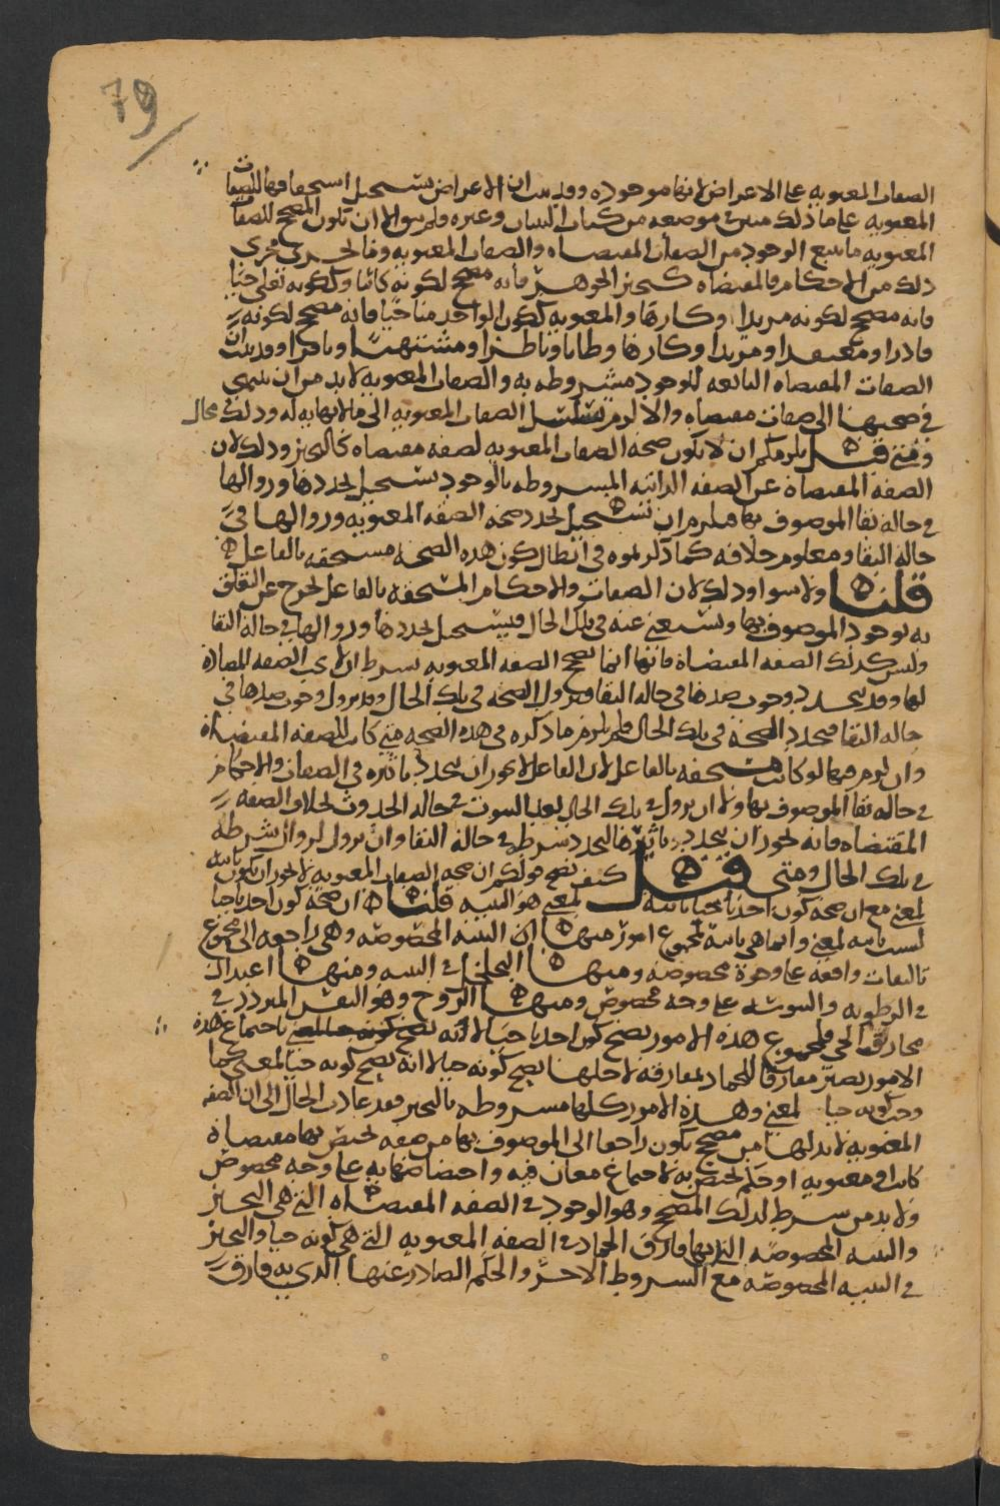 79
الصفات المعنويه على الاعراض لانها موجوده وقد بينا ان الاعراض يستحيل استحقاقها للصفات
المعنويه على ما ذلك مبين في موضعه من كتاب البيان وغيره فلم يبق الا ان يكون المصحح للصفات
المعنويه ما يتبع الوجود من الصفات المقتضاه والصفات المعنويه وما يجري مجرى
ذلك من الاحكام فالمقتضاه كتحيز الجوهر فانه مصحح لكونه كائنا ولكونه تعالى حيا
فانه مصحح لكونه مريدا وكارها والمعنويه ككون الواحد منا حيا فانه مصحح لكونه
قادرا ومعتقدا ومريدا وكارها وظانا وناظرا ومشتهيا ونافرا وقد بينا ان
الصفات المقتضاه التابعه للوجود مشروطه به والصفات المعنويه لا بد من ان ينتهي
في صحتها الى صفات مقتضاه والا لزم تسلسل الصفات المعنويه الى ما لا نهايه له وذلك محال
ومتى قيل يلزمكم ان لا تكون صحه الصفات المعنويه لصفه مقتضاه كالتحيز وذلك لان
الصفه المقتضاه عن الصفه الذاتيه المشروطه بالوجود يستحيل تجددها وزوالها
في حاله بقا الموصوف بها فيلزم ان يستحيل تجدد صحه الصفه المعنويه وزوالها في
حاله البقا ومعلوم خلافه كما ذكرتموه في ابطال كون هذه الصحه مستحقه بالفاعل
قلنا ولا سوا وذلك لان الصفات والاحكام المستحقه بالفاعل تخرج عن التعلق
به لوجود الموصوف بها وتستغني عنه في تلك الحال فيستحيل تجددها وزوالها في حاله البقا
وليس كذلك الصفه المقتضاه فانها انما تصحح الصفه المعنويه بشرط ان لا تجب الصفه المضاده
لها وقد يتجدد وجوب ضدها في حاله البقا فتزول الصحه في تلك الحال وقد يزول وجوب ضدها في
حاله البقا فتتجدد الصحه في تلك الحال فلم يلزم ما ذكره في هذه الصحه متى كانت للصفه المقتضاه
وان لزم فيها لو كانت مستحقه بالفاعل لان الفاعل لا يجوز ان يتجدد تاثيره في الصفات والاحكام
في حاله بقا الموصوف بها ولا ان يزول في تلك الحال بعد الثبوت في حاله الحدوث بخلاف الصفه
المقتضاه فانه يجوز ان يتجدد تاثيرها لتجدد شرطه في حاله البقا وان يزول لزوال شرطه
في تلك الحال ومتى قيل كيف يصح قولكم ان صحه الصفات المعنويه لا يجوز ان تكون ثابته
لمعنى مع ان صحه كون احدنا حيا ثابته لمعنى هو البنيه قلنا ان صحه كون احدنا حيا
ليست ثابته لمعنى وانما هي ثابته لمجموع امور منها ان البنيه المخصوصه وهي راجعه الى مجموع
تاليفات واقعه على وجوه مخصوصه ومنها التخلخل في البنيه ومنها اعتدال
في الرطوبه واليبوسه على وجه مخصوص ومنها الروح وهو النفس المتردد في
مخارق الحي فلمجموع هذه الامور يصح كون احدنا حيا لا انه باجتماع هذه
الامور يصير مفارقا للجماد لمفارقه لاجلها يصح كونه حيا لا انه يصح كونه حيا لمعنى كما
وجب كونه حيا لمعنى وهذه الامور كلها مشروطه بالتحيز فقد عادت الحال الى ان الصفه
المعنويه لا بد لها من مصحح يكون راجعا الى الموصوف بها من صفه تختص بها مقتضاه
كانت او معنويه او حكم تختص به لاجتماع معان فيه واختصاصها به على وجه مخصوص
ولا بد من شرط لذلك المصحح وهو الوجود في الصفه المقتضاه التي هي التحيز
والبنيه المخصوصه التي بها فارق الجماد في الصفه المعنويه التي هي كونه حيا والتحيز
في البنيه المخصوصه مع الشروط الاخر والحكم الصادر عنها الذي به فارق